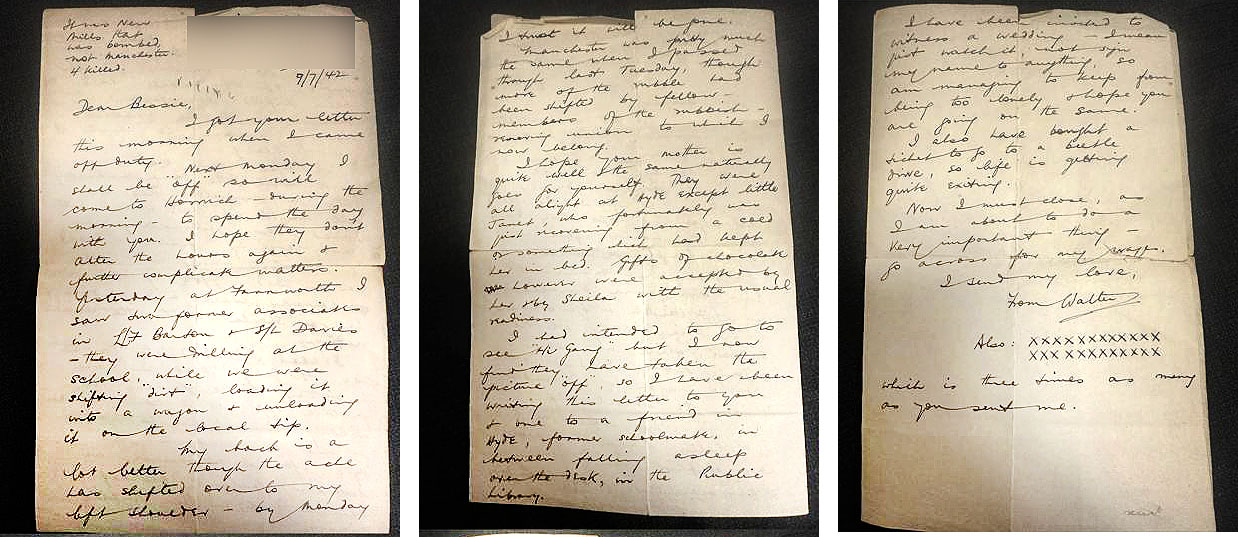 It was New
Mills that
was bombed,
not Manchester.
4 killed.
9/7/42
Dear Bessie,
I got your letter
this morning when I came
off duty. Next Monday I
shall be "off" so will
come to Horwich - during the
morning - to spend the day
with you. I hope they don't
alter the hours again &
further complicate matters.
Yesterday at Farnworth I
saw two former associates
in L/F Barton & S/L Davies
- they were drilling at the
school, while we were
shifting "dirt", loading it
into a wagon & unloading
it on the local tip.
My back is a
lot better though the ache
has shifted over to my
left shoulder - by Monday
I trust it will be fine.
Manchester was pretty much
the same when I passed
through last Tuesday, though
more of the rubble had
been shifted by fellow-
members of the rubbish-
removing union to which I
now belong.
I hope your mother is
quite well & the same naturally
goes for yourself. They were
all alight at Hyde except little
Janet, who fortunately was
just recovering from a cold
or something which had kept
her in bed. Gifts of chocolate
however were accepted by
her & by Sheila with the usual
readiness.
I had intended to go to
see "Hi Gang" but I now
find they have taken the
picture "off", so I have been
writing this letter to you
& one to a friend in
Hyde, former schoolmate, in
between falling asleep
over the desk, in the Public
Library.
I have been invited to
witness a wedding - I mean
just watch it, not sign
my name to anything, so
am managing to keep from
being too lonely & hope you
are going on the same.
I also have bought a
ticket to go to a beetle
drive, so life is getting
quite exiting.
Now I must close, as
I am about to do a
very important thing -
go across for my wages.
I send my love,
From Walter
Also: XXXXXXXXXXXX
XXX XXXXXXXXX
which is three times as many
as you sent me.